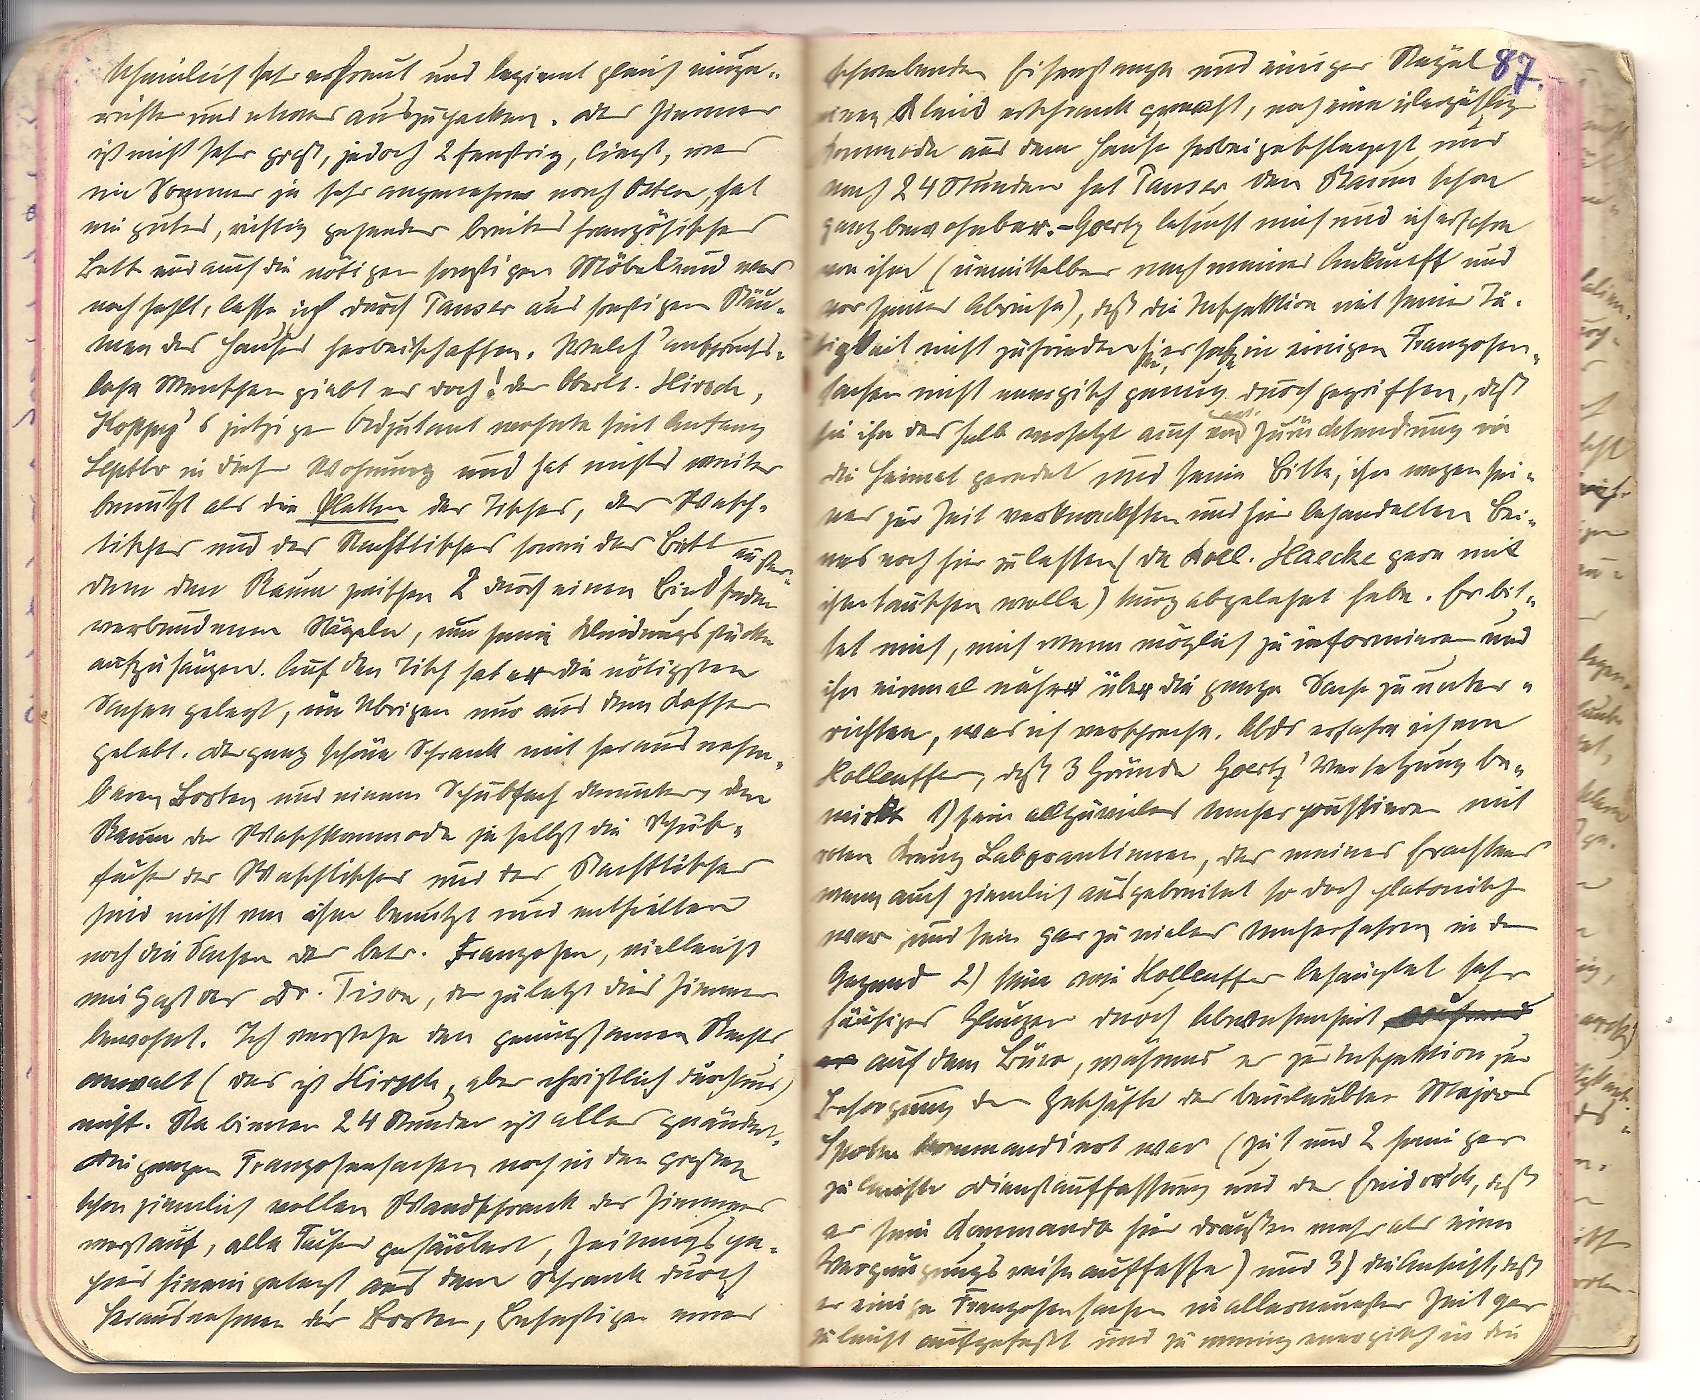 scheinlich sehr erfreut und beginnt gleich einzu-
richten und etwas auszupacken. Das Zimmer
ist nicht sehr groß, jedoch 2 fenstrig, liegt, was
im Sommer ja sehr angenehm nach Osten, hat
ein gutes, richtig gehendes breites französisches
Bett und auch die nötigen sonstigen Möbel und was
noch fehlt, lasse ich durch Tauser aus sonstigen Räu-
men des Hauses herbeischaffen. Welch anspruchs-
lose Menschen giebt es doch! Der Oberlt. Hirsch,
jetziger Adjutant wohnte seit Anfang
Septbr in dieser Wohnung und hat nichts weiter
benutzt als die Platten des Tisches, des Wasch-
tisches und des Nachttisches sowie das Bett außer-
dem den Raum zwischen 2 durch einen Bindfaden
verbundenen Nägeln, um seine Kleidungsstücke
aufzuhängen. Auf den Tisch hat er die nötigsten
Sachen gelegt, im Übrigen nur aus dem Koffer
gelebt. Der ganz schöne Schrank mit herausnehm-
baren Borten und einem Schubfach darunter, der
Raum der Waschkommode ja selbst die Schub-
fächer des Waschtisches und des Nachttisches
sind nicht von ihm benutzt und enthielten
noch die Sachen der betr. Franzosen, vielleicht
meist des Dr. Tison, der zuletzt dies Zimmer
bewohnt. Ich verstehe den genügsamen Rechts-
anwalt (das ist Hirsch, aber christlich durchaus)
nicht. Na binnen 24 Stunden ist alles geändert.
Die ganzen Franzosensachen noch in den großen
schon ziemlich vollen Wandschrank des Zimmers
verstaut, alle Fächer gesäubert, Zeitungspa-
pier hineingelegt aus dem Schrank durch
Herausnehmen der Borten, Befestigen einer
schwebenden Eisenstange und einiger Nägel 87.
einen Kleiderschrank gemacht, noch eine überzählige
Kommode aus dem Hause herbeigeschleppt und
nach 24 Stunden hat Tauser den Raum schon
ganz bewohnbar. – Goertz besucht mich und ich erfahre
von ihm (unmittelbar nach meiner Ankunft und
vor seiner Abreise), daß die Inspektion mit seiner Tä-
tigkeit nicht zufrieden sei, er habe in einigen Franzosen-
sachen nicht energisch genug durchgegriffen, daß
sie ihn deshalb versetzt auch von Zurücksendung in
die Heimat geredet und seine Bitte, ihn wegen sei-
ner zur Zeit verknacksten und hier behandelten Bei-
nes noch hier zu lassen (da Koll. Haecke gern mit
ihm tauschen wolle) kurz abgelehnt habe. Er bit-
tet mich, mich wenn möglich zu informieren und
ihn einmal näher über die ganze Sache zu unter-
richten, was ich verspreche. Abds erfahre ich von
Kollenffer, daß 3 Gründe Goertz' Versetzung be-
wirkt 1) sein allzuvieles Umherpoussieren mit
roten Kreuz Laborantinnen, das meines Erachtens
wenn auch ziemlich ausgebreitet so doch platonisch
war und sein gar zu vieles Umherfahren in der
Gegend 2) sein wie Kollenffer behauptet sehr
häufiges Glänzen durch Abwesenheit
auf dem Büro, während er zur Inspektion zur
Besorgung der Geschäfte des beurlaubten Majors
kommandiert war (zu 1 und 2 seine gar
zu leichte Dienstauffassung und der Eindruck, daß
er sein Kommando hier draußen mehr als eine
Vergnügungsreise auffasse) und 3) die Ansicht, daß
er einige Franzosensachen in allerneuester Zeit gar
zu leicht aufgefaßt und zu wenig energisch in die